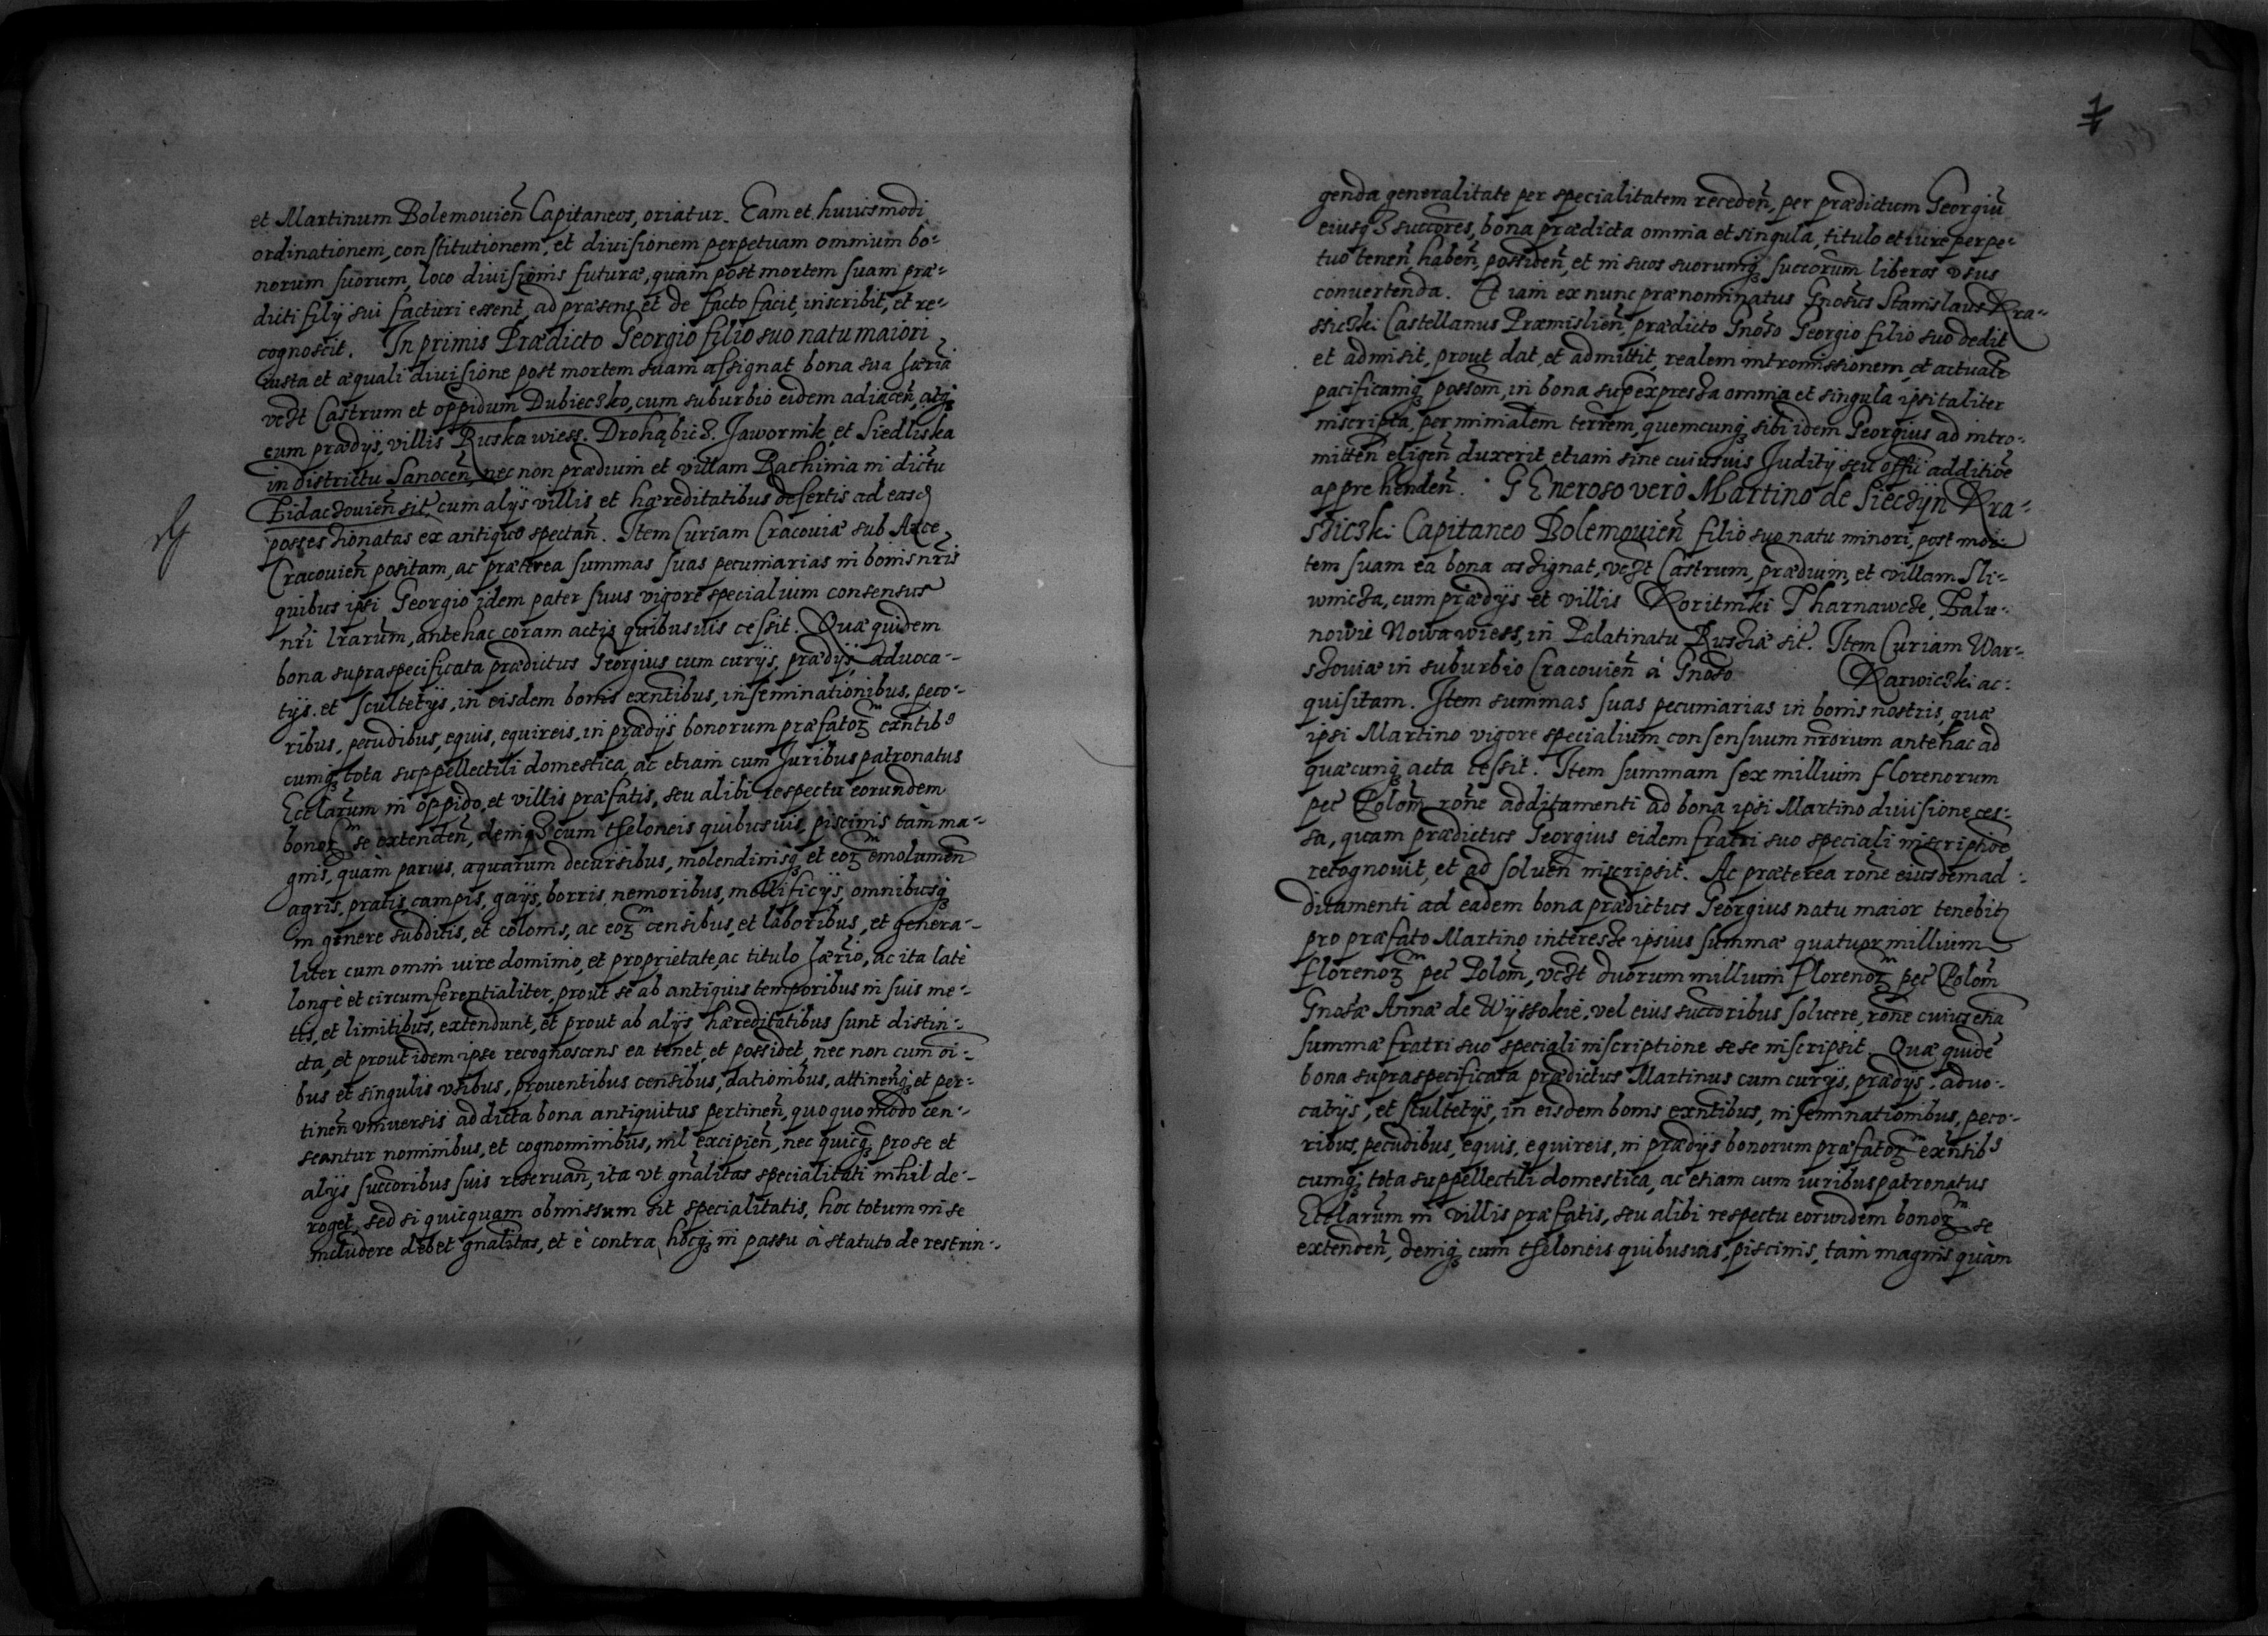 et Martinum Bolemouień Capitaneos, oriatur. Eam et huiusmodi
ordinationem, constitutionem, et diuisionem perpetuam omnium bo-
norum suorum, loco diuisionis futuræ, quam post mortem suam præ-
dicti filÿ sui facturi essent, ad præsens et de facto facit, inscribit, et re-
cognoscit. In primis Prædicto Georgio filio suo natu maiori
iusta et æquali diuisione post mortem suam assignat bona sua hæria
vczt Castrum et oppidum Dubieczko, cum suburbio eidem adiaceń, atq
cum prædÿs, villis Ruska wiess. Drohąbicz. Jawornik et Siedliska
in districtu Sanoceń, nec non prædium et villam Rachinia in dictu
Zidaczouień sit. cum alÿs villis et hæreditatibus desertis ad easd
possessionatas ex antiquo spectań. Item Curiam Cracouiæ sub Arce
Cracouień positam, ac præterea summas suas pecuniarias in bonis nris
quibus ipsi Georgio idem pater suus vigore specialium consensus
nri lrarum, antehac coram actis quibusuis cessit. Quæ quidem
bona supraspecificata prædictus Georgius cum curÿs, prædÿs, aduoca-
tÿs. et scultetÿs, in eisdem bonis exntibus, inseminationibus, peco-
ribus, pecudibus, equis, equireis, in prædÿs bonorum præfatoꝝ exntib9
cumq tota suppellectili domestica, ac etiam cum Juribus patronatus
Ecclarum in oppido, et villis præfatis, seu alibi respectu eorundem
bonoꝝ se extendeń, deniqꝫ cum theloneis quibusuis, piscinis tam ma-
gnis, quàm paruis, aquarum decursibus, molendinisq et eoꝝ emolumeń
agris, pratis, campis, gaÿs, borris, nemoribus, mellificÿs, omnibusq
in genere subditis, et colonis, ac eoꝝ censibus, et laboribus, et genera-
liter cum omni iure dominio, et proprietate, ac titulo hærio, ac ita latè
longè et circumferentialiter, prout se ab antiquis temporibus in suis me-
tis, et limitibus, extendunt, et prout ab alÿs hæreditatibus sunt distin-
cta, et prout idem ipse recognoscens ea tenet, et possidet, nec non cum oi-
bus et singulis vsibus, prouentibus censibus, dationibus, attineńq, et per-
tineń vniuersis ad dicta bona antiquitus pertineń, quoquo modo cen-
seantur nominibus, et cognominibus, nil excipień, nec quicq pro se et
alÿs succoribus suis reseruań, ita vt gnalitas specialitati nihil de-
roget, sed si quicquam obmissum sit specialitatis, hoc totum in se
includere debet gnalitas, et è contra, hocq in passu à statuto de restrin-
1
genda generalitate per specialitatem recedeń, per prædictum Georgiu
eiusqꝫ succores, bona prædicta omnia et singula, titulo et iure perpe-
tuo teneń, habeń, possideń, et in suos suorumq succorum liberos vsus
conuertenda. Et iam ex nunc prænominatus Gnosus Stanislaus Kra-
ssiczki Castellanus Præmislień, prædicto Gnoso Georgio filio suo dedit
et admisit, prout dat, et admittit, realem intromissionem, et actuale
pacificamq possom, in bona supexpressa omnia et singula ipsi taliter
inscripta, per minialem terrem, quemcunq sibi idem Georgius ad intro-
mitteń eligeń duxerit etiam sine cuiusuis Juditÿ seu offii additioe
apprehendeń. GEneroso verò Martino de Siecżÿn Kra-
ssiczki Capitaneo Bolemouień filio suo natu minori, post mor-
tem suam ea bona assignat, vczt Castrum, prædium, et villam Sli-
wnicza, cum prædÿs et villis Koritniki Tharnawcze, Balu-
nowie Nowawiess, in Palatinatu Russiæ sit. Item Curiam War-
schouiæ in suburbio Cracouień à Gnoso Karwiczki ac-
quisitam. Item summas suas pecuniarias in bonis nostris, quæ
ipsi Martino vigore specialium consensuum nrorum antehac ad
quæcunq acta cessit. Item summam sex millium florenorum
pec Polom rone additamenti ad bona ipsi Martino diuisione ces-
sa, quam prædictus Georgius eidem fratri suo speciali inscriptioe
recognouit, et ad solueń inscripsit. Ac præterea rone eiusdem ad-
ditamenti ad eadem bona prædictus Georgius natu maior tenebit
pro præfato Martino interesse ipsius summæ quatuor millium
florenoꝝ pec Polom, vczt duorum millium florenoꝝ pec Polom
Gnosæ Annæ de Wÿssokie, vel eius succoribus soluere, rone cuius etia
summæ fratri suo speciali inscriptione sese inscripsit. Quæ quide
bona supraspecificata prædictus Martinus cum curÿs, prædÿs, aduo-
catÿs, et scultetÿs, in eisdem bonis exntibus, inseminationibus, peco-
ribus, pecudibus, equis, equireis, in prædÿs bonorum præfatoꝝ exntib9
cumq tota suppellectili domestica, ac etiam cum iuribus patronatus
Ecclarum in villis præfatis, seu alibi respectu eorundem bonoꝝ se
extendeń, deniq cum theloneis quibusuis, piscinis, tam magnis quàm